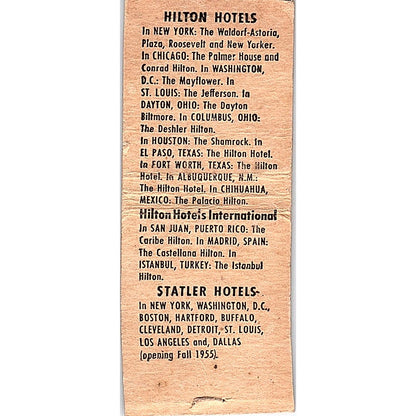 HILTON HOTELS
In NEW YORK: The Waldorf-Astoria,
Plaza, Roosevelt and New Yorker.
In CHICAGO: The Palmer House and
Conrad Hilton. In WASHINGTON,
D.C.: The Mayflower. In
ST. LOUIS: The Jefferson. In
DAYTON, OHIO: The Dayton
Biltmore. In COLUMBUS, OHIO:
The Deshler Hilton.
In HOUSTON: The Shamrock. In
EL PASO, TEXAS: The Hilton Hotel.
In FORT WORTH, TEXAS: The Hilton
Hotel. In ALBUQUERQUE, N.M.:
The Hilton Hotel. In CHIHUAHUA,
MEXICO: The Palacio Hilton.
Hilton Hotels International
In SAN JUAN, PUERTO RICO: The
Caribe Hilton. In MADRID, SPAIN:
The Castellana Hilton. In
ISTANBUL, TURKEY: The Istanbul
Hilton.
STATLER HOTELS
In NEW YORK, WASHINGTON, D.C.,
BOSTON, HARTFORD, BUFFALO,
CLEVELAND, DETROIT, ST. LOUIS,
LOS ANGELES and, DALLAS
(opening Fall 1955).